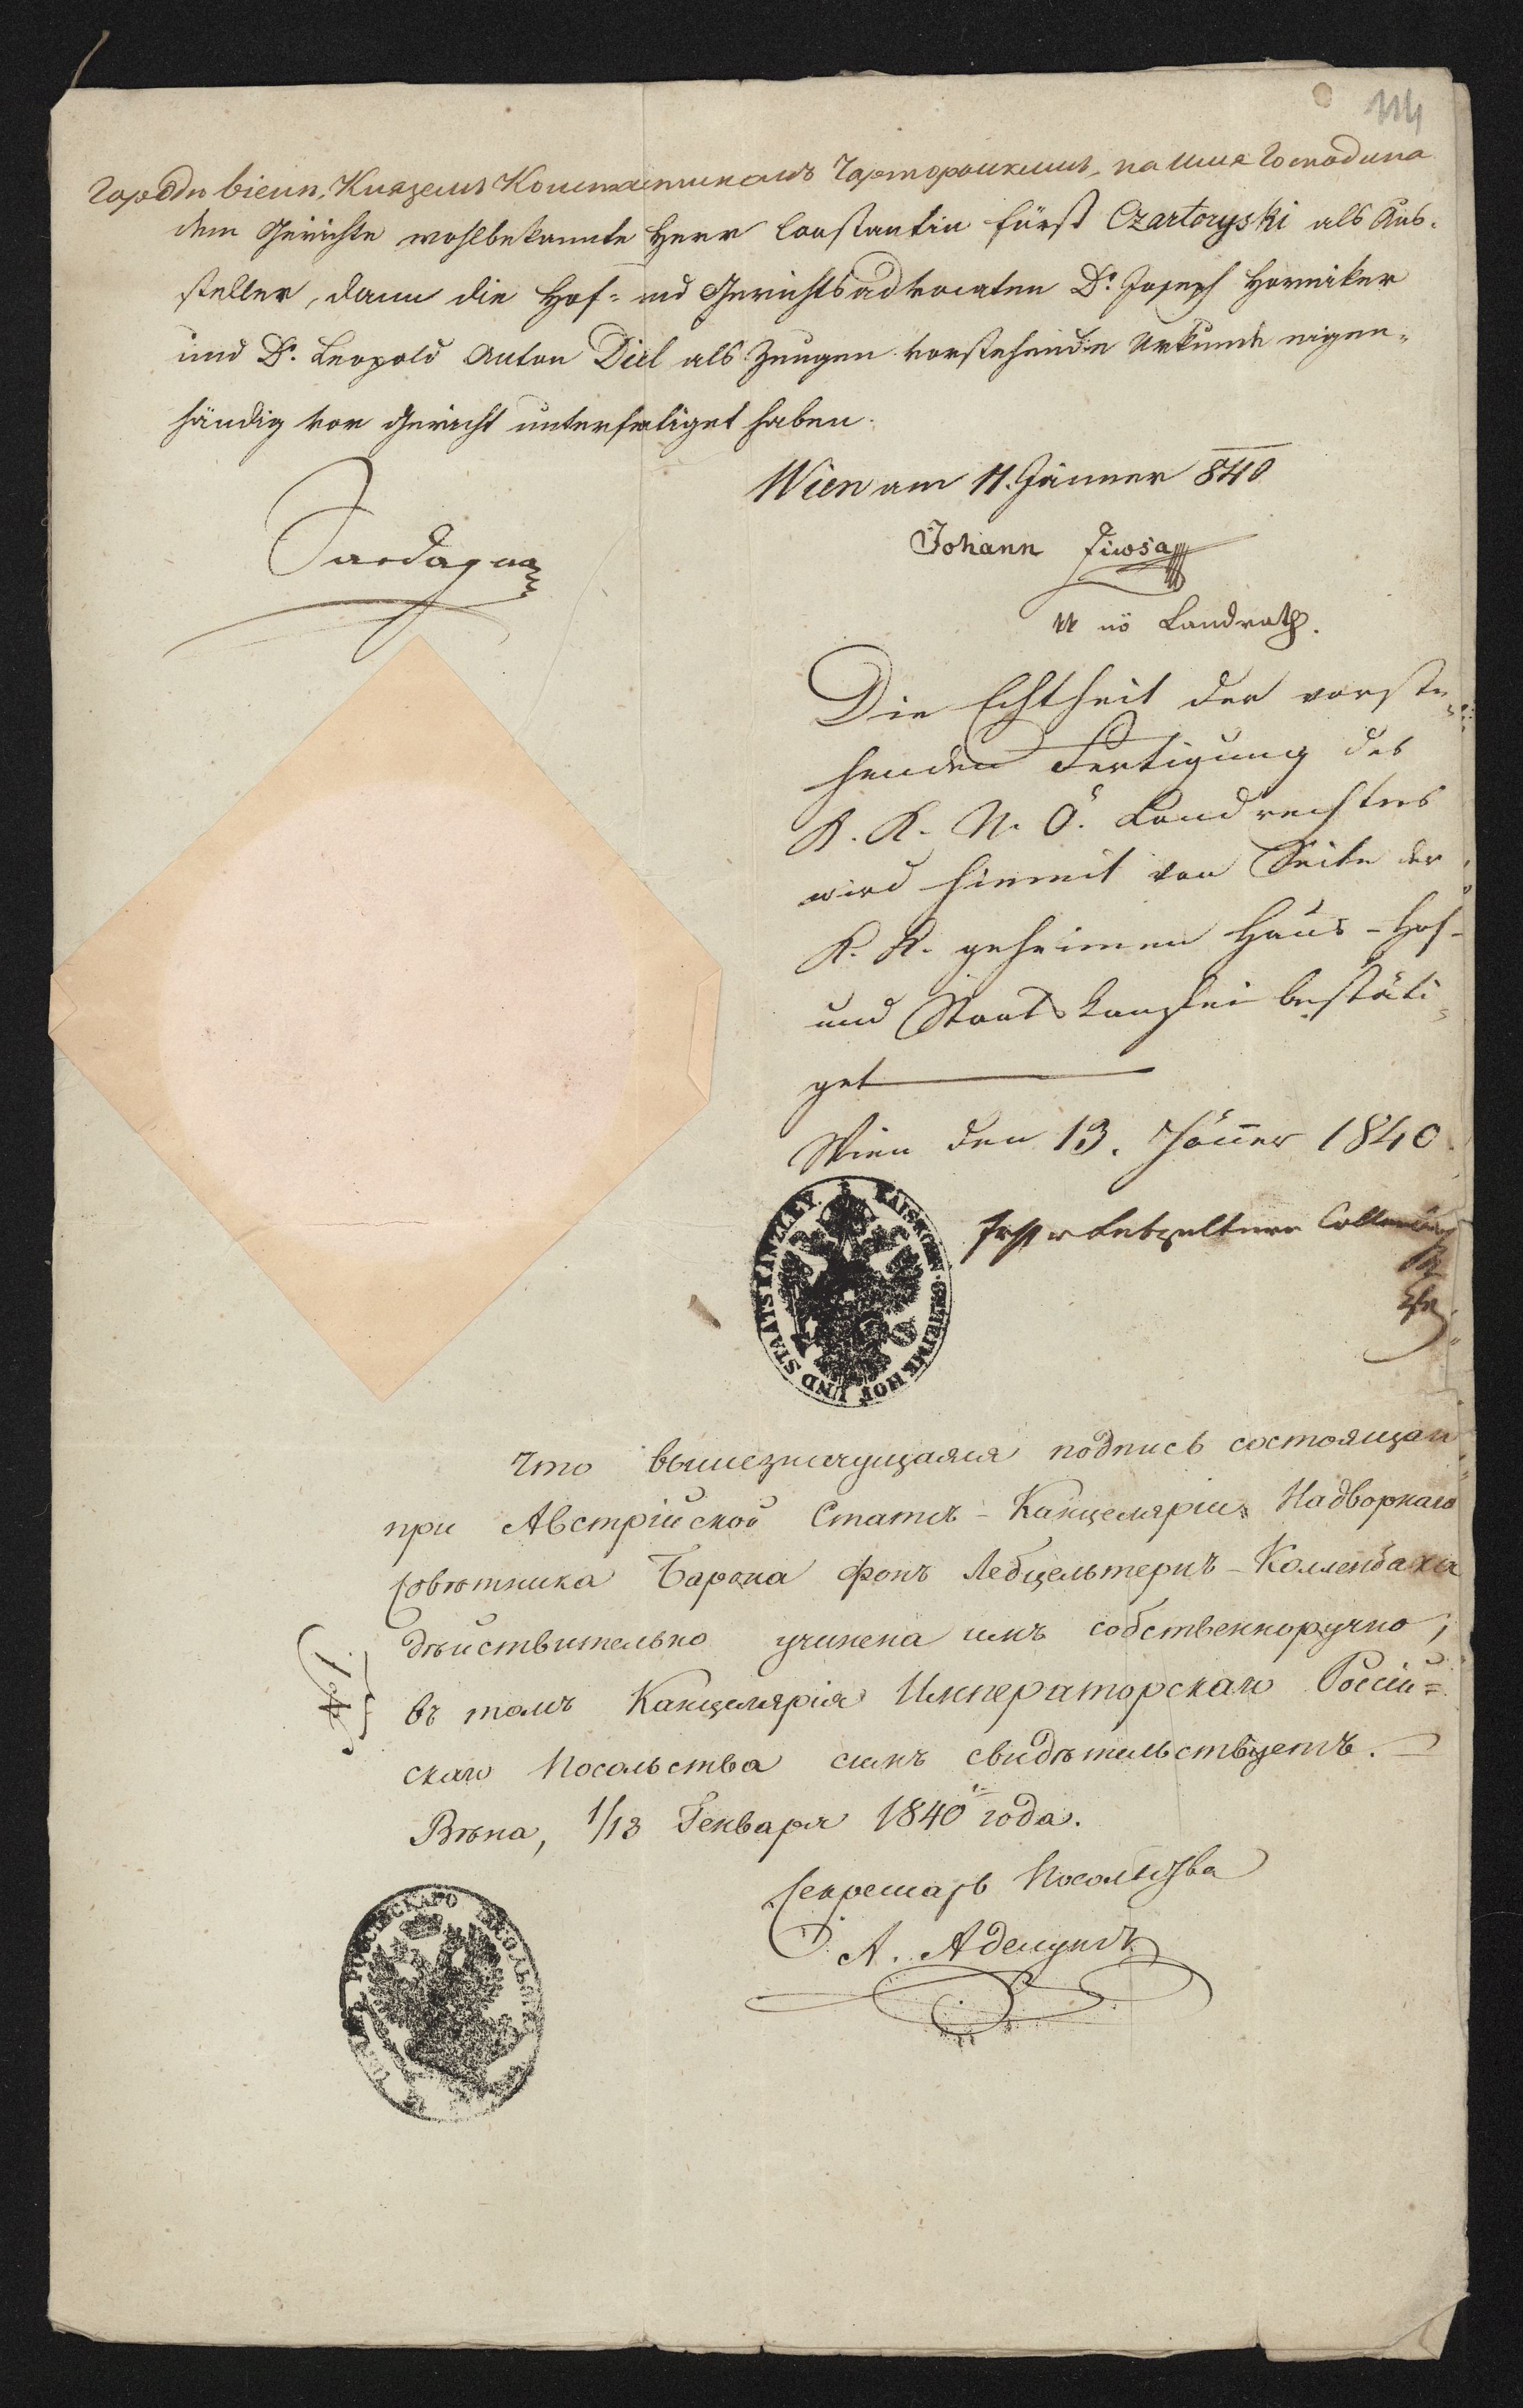 114
городѣ Віенн, Княземъ Константиномъ Чарторыскимъ, на имя Господина
dem Gerichte wohlbekannte Herr Constantin Fürst Czartoryski als Aus-
steller, dann die Hof- und Gerichtsadvocaten Dr. Joseph Horniker
und Dr. Leopold Anton Diel als Zeugen vorstehende Urkunde eigen-
händig vor Gericht unterfertiget haben.
Wien am 11. Jänner 840
Johann
nö Landrath.
Die Echtheit der vorste-
henden Fertigung des
K. K. N. Ö. Landrechtes
wird hiemit von Seite der
K. K. geheimen Haus- Hof-
und Staatskanzlei bestäti-
get
Wien den 13. Jänner 1840
KAIS. KÖN. GEHEIME HOF UND STAATS KANZLEY.
Lebzeltern Collenbach
Что вышезначущаяся подпись состоящаго
при Австрійской Статсъ-Канцеляріи Надворнаго
Совѣтника Барона фонъ Лебцельтернъ-Колленбаха
дѣйствительно учинена имъ собственноручно,
въ томъ Канцелярія Императорскаго Россій=
скаго Посольства симъ свидѣтельствуетъ.
Вѣна, 1/13 Генваря 1840 года.
Секретарь Посольства
А. Аделунгъ
РОССІЙСКАГО ПОСОЛЬСТВА